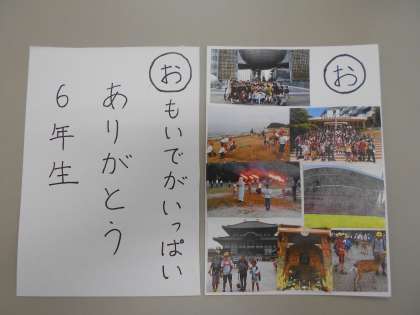 お
おもいでがいっぱい
ありがとう
6年生